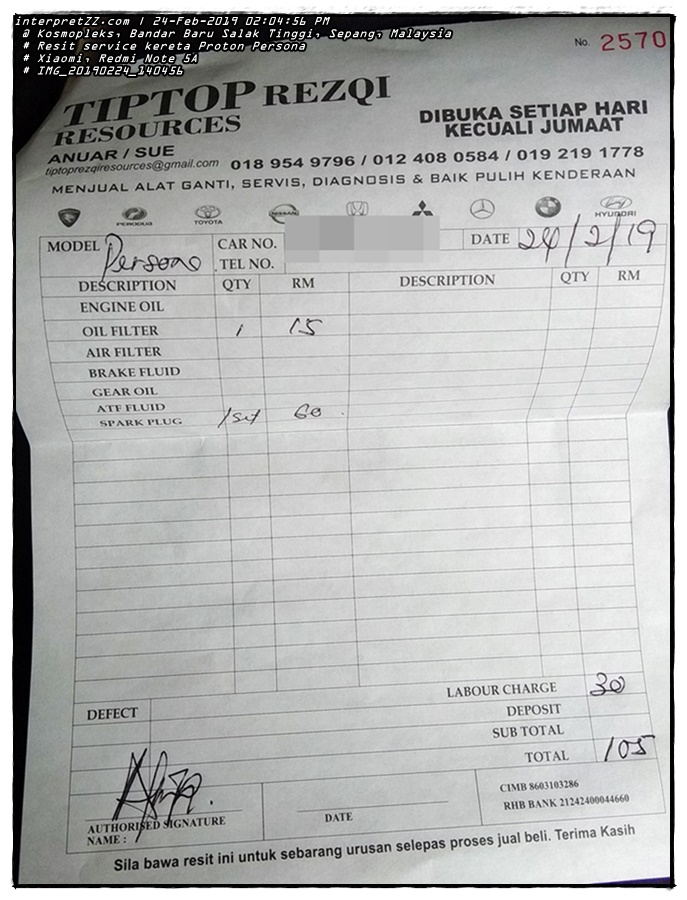 interpretZZ.com | 24-Feb-2019 02:04:56 PM
@ Kosmopleks, Bandar Baru Salak Tinggi, Sepang, Malaysia
# Resit service kereta Proton Persona
# Xiaomi, Redmi Note 5A
# IMG_20190224_140456
No. 2570
TIPTOP REZQI
RESOURCES
DIBUKA SETIAP HARI
KECUALI JUMAAT
ANUAR / SUE
tiptoprezqiresources@gmail.com 018 954 9796 / 012 408 0584 / 019 219 1778
MENJUAL ALAT GANTI, SERVIS, DIAGNOSIS & BAIK PULIH KENDERAAN
PERODUA TOYOTA NISSAN HYUNDAI
MODEL Persona CAR NO. DATE 24/2/19
TEL NO.
DESCRIPTION QTY RM DESCRIPTION QTY RM
ENGINE OIL
OIL FILTER 1 15
AIR FILTER
BRAKE FLUID
GEAR OIL
ATF FLUID
SPARK PLUG 1set 60
LABOUR CHARGE 30
DEFECT DEPOSIT
SUB TOTAL
TOTAL 105
CIMB 8603103286
RHB BANK 21242400044660
AUTHORISED SIGNATURE DATE
NAME :
Sila bawa resit ini untuk sebarang urusan selepas proses jual beli. Terima Kasih